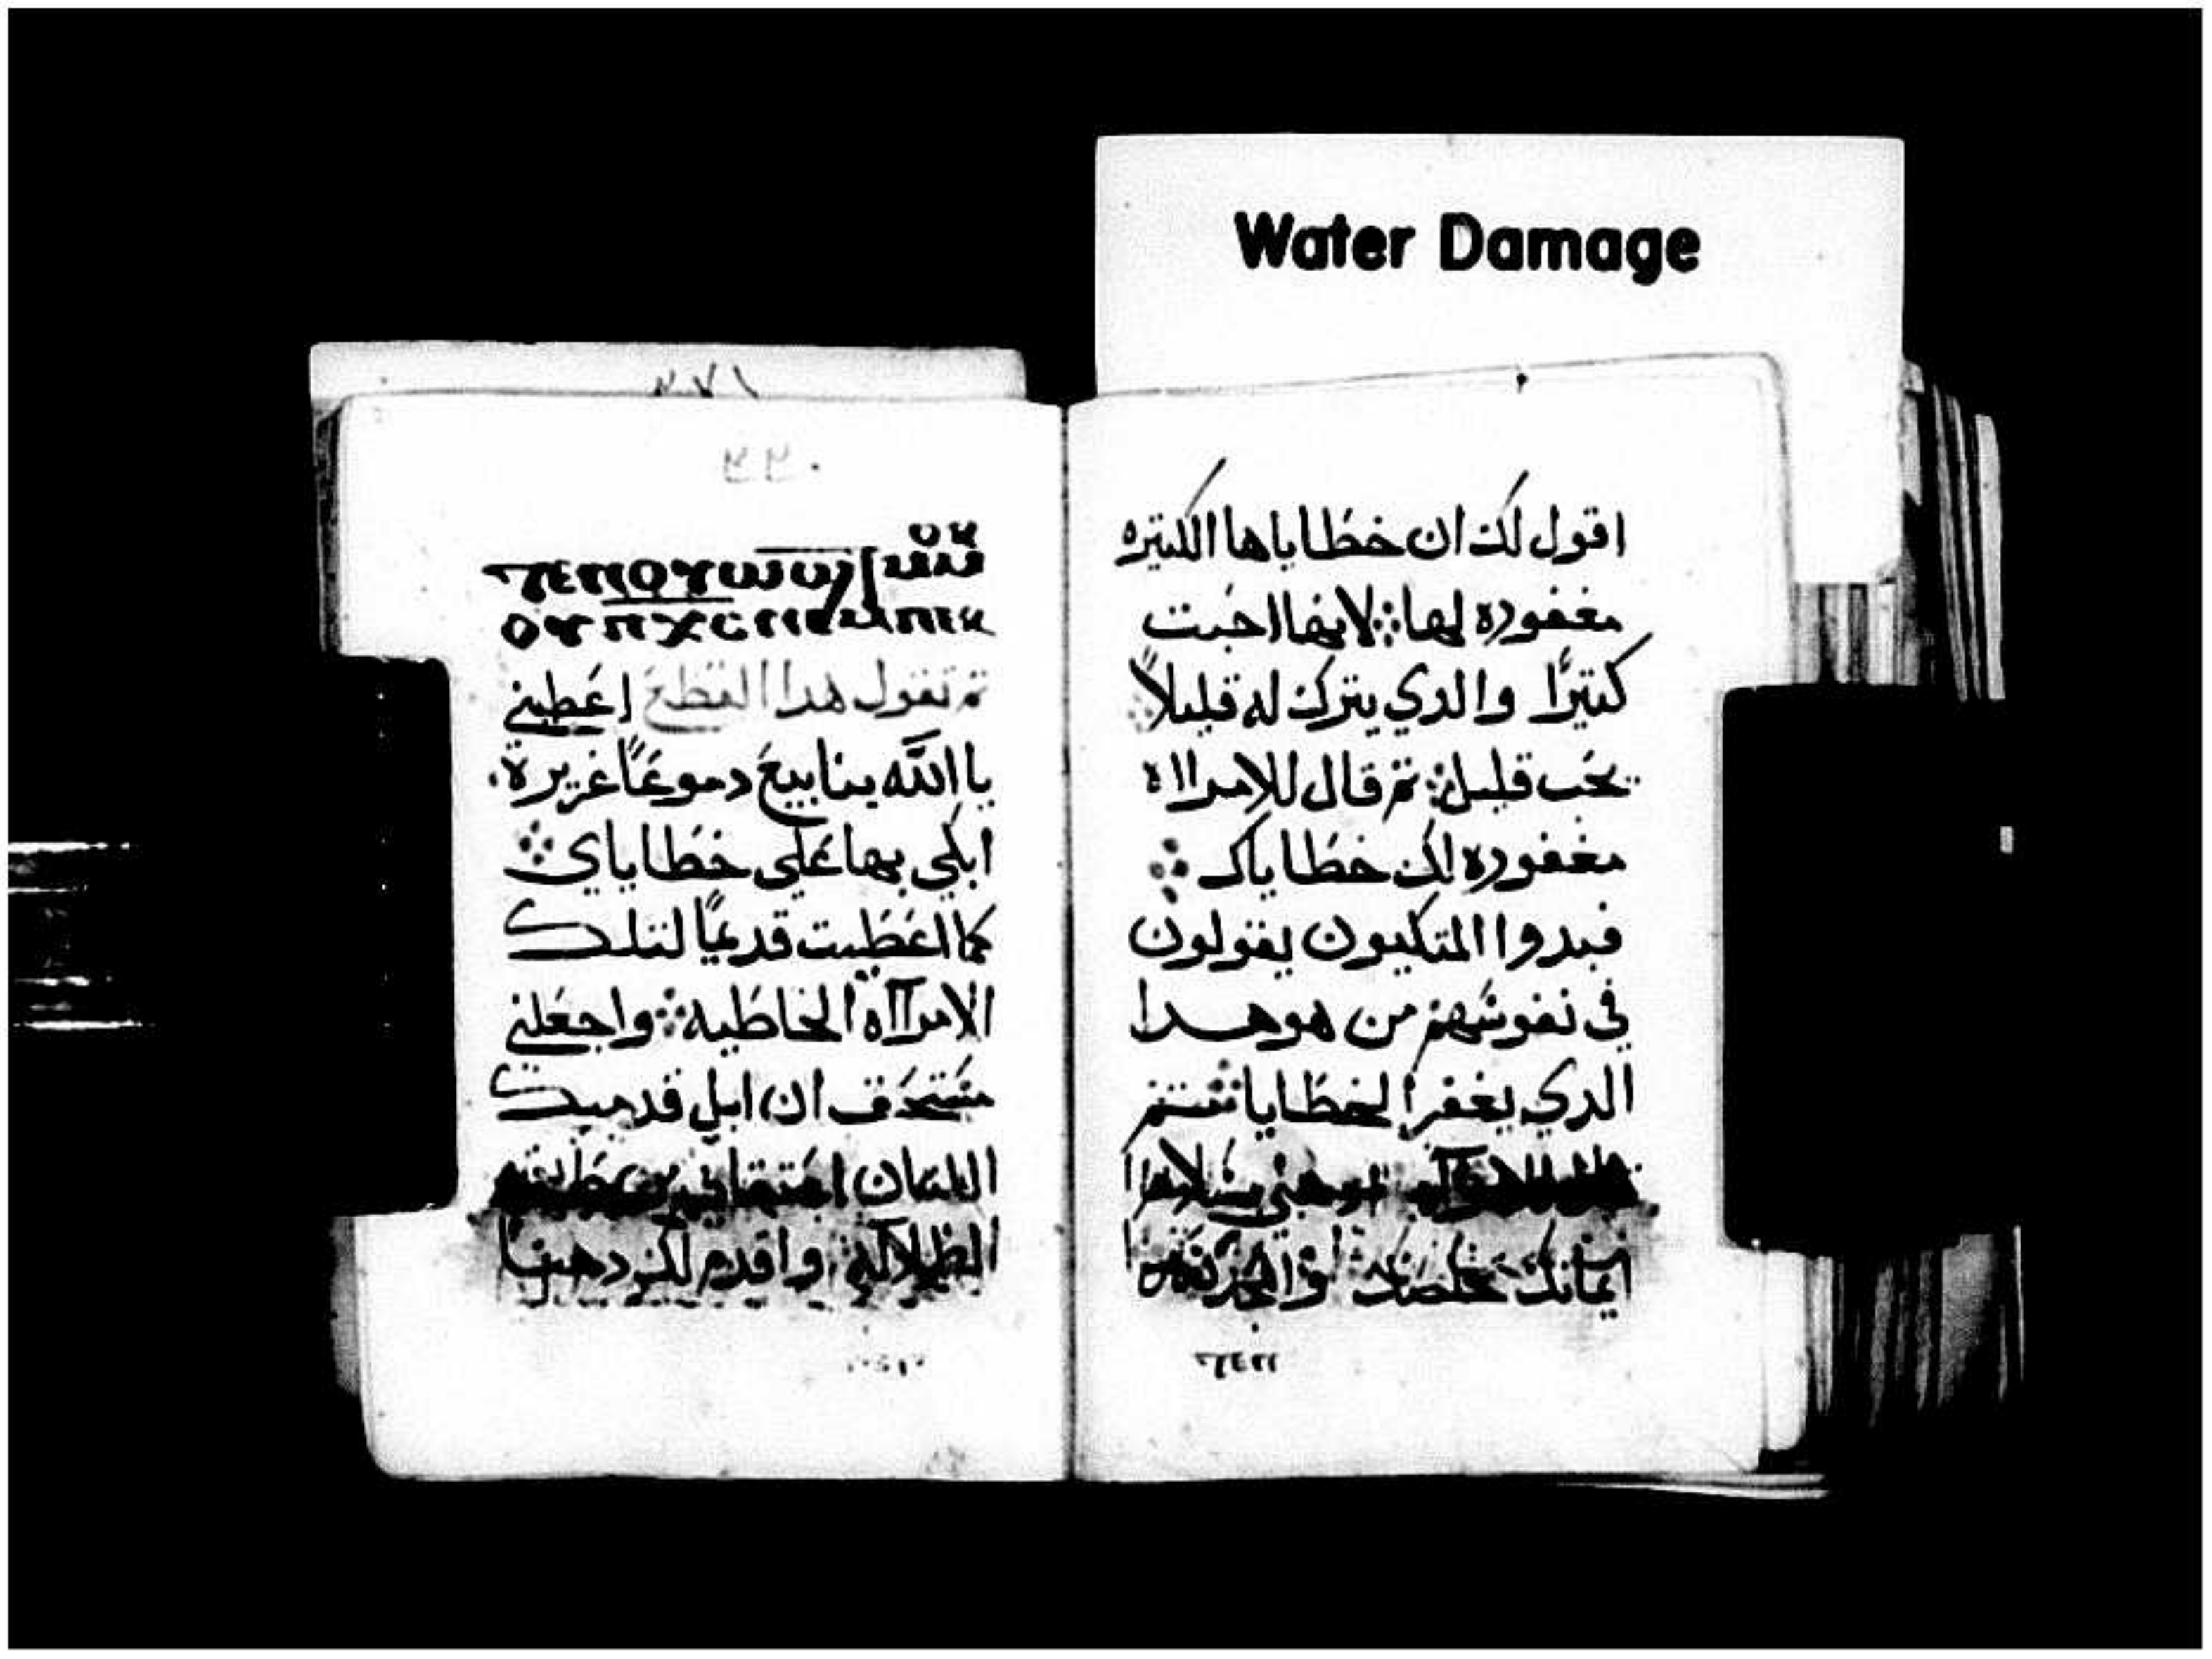 Water Damage
اقول لك ان خطاياها الكتيره
مغفوره لها لانها احبت
كتيرًا والدي يترك له قليلاً
يحب قليل تم قال للامرااه
مغفوره لك خطاياك
فبدوا المتكيون يقولون
في نفوسهم من هو هدا
الدي يغفر الخطايا تم
ايمانك خلصك
٢٧١
٢٢٠
تم تقول هدا القطع اعطيني
يا الله ينابيع دموعًا غزيرة
ابكي بها على خطاياي
كما اعطيت قديمًا لتلك
الامرااه الخاطيه واجعلني
مستحق ان ابل قدميك
اللتان من
الظلاله واقدم لك دهنا